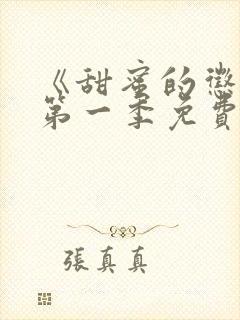 《甜蜜的懲
第一季免費
張真真